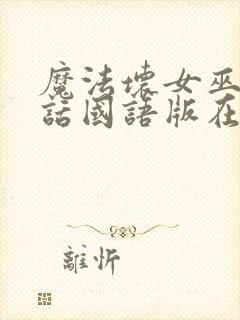 魔法壞女巫
話國語版在
離忻